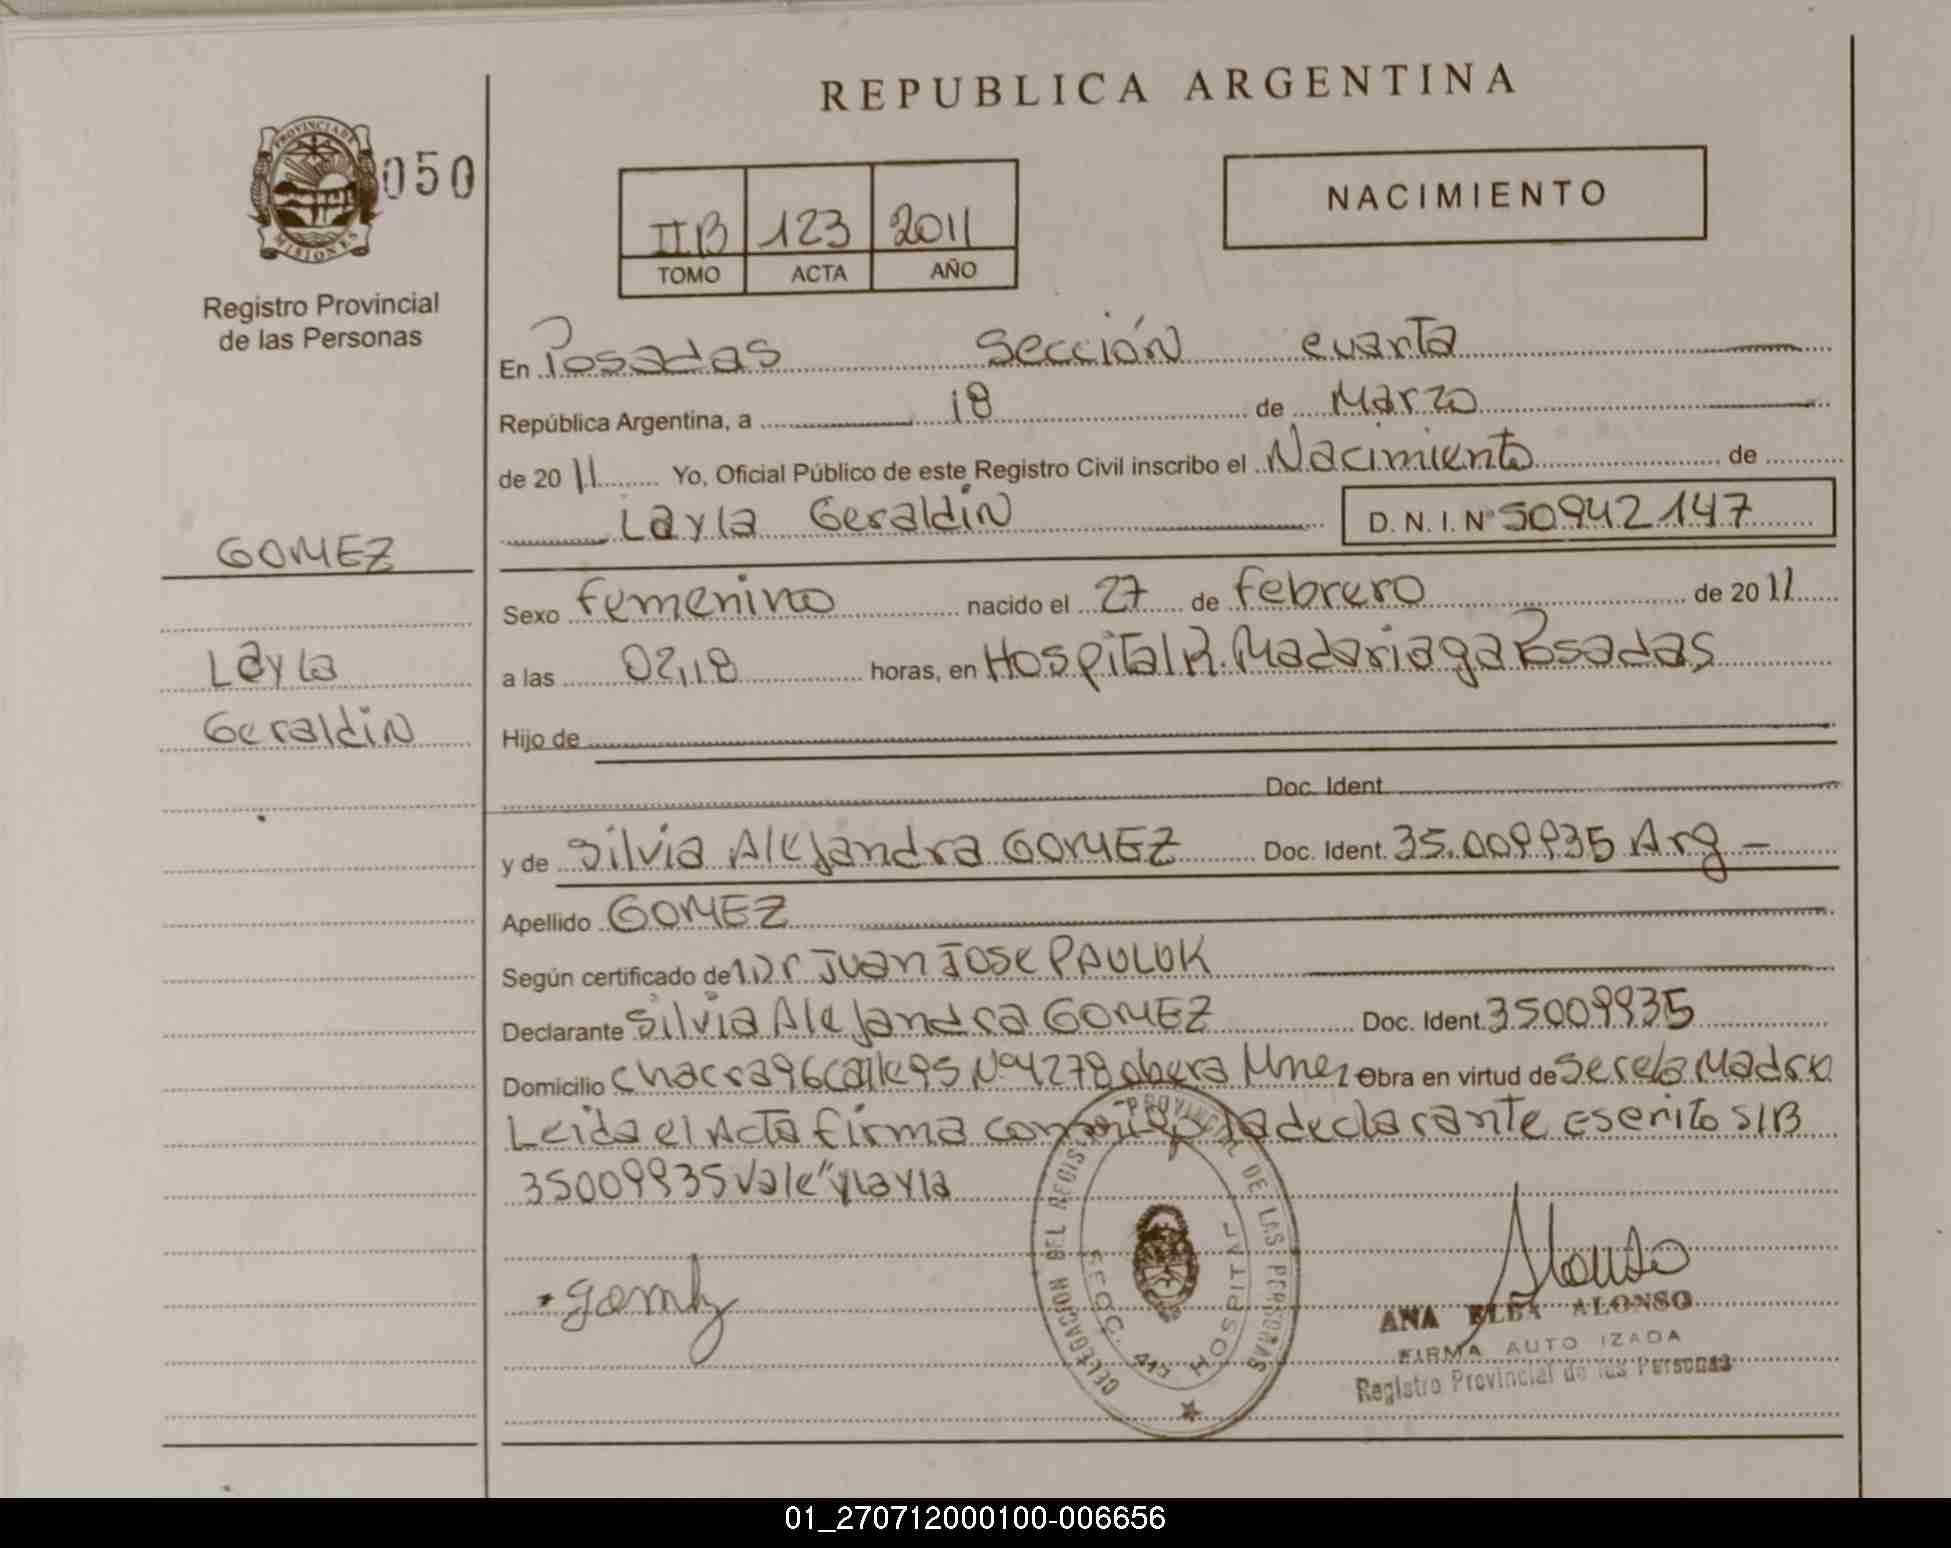 REPUBLICA ARGENTINA
PROVINCIA DE
MISIONES
050
Registro Provincial
de las Personas
IIB 123 2011
TOMO ACTA AÑO
NACIMIENTO
En Posadas Sección cuarta
República Argentina, a 18 de Marzo
de 2011 Yo, Oficial Público de este Registro Civil inscribo el Nacimiento de
Layla Geraldin D.N.I. Nº 50942147
GOMEZ
Layla
Geraldin
Sexo femenino nacido el 27 de febrero de 2011
a las 02,18 horas, en Hospital R. Madariaga Posadas
Hijo de
Doc. Ident.
y de Silvia Alejandra GOMEZ Doc. Ident. 35.009935 Arg -
Apellido GOMEZ
Según certificado de Dr Juan Jose PAULUK
Declarante Silvia Alejandra GOMEZ Doc. Ident. 35009935
Domicilio Chacra 96 calle 95 Nº 4278 obera Mnes Obra en virtud de ser la Madre
Leida el Acta firma conmigo la declarante escrito S/B
35009935 Vale "y Layla
DELEGACION DEL REGISTRO PROVINCIAL DE LAS PERSONAS
SECC. 4ta HOSPITAL
ANA ELBA ALONSO
FIRMA AUTO IZADA
Registro Provincial de las Personas
01_270712000100-006656